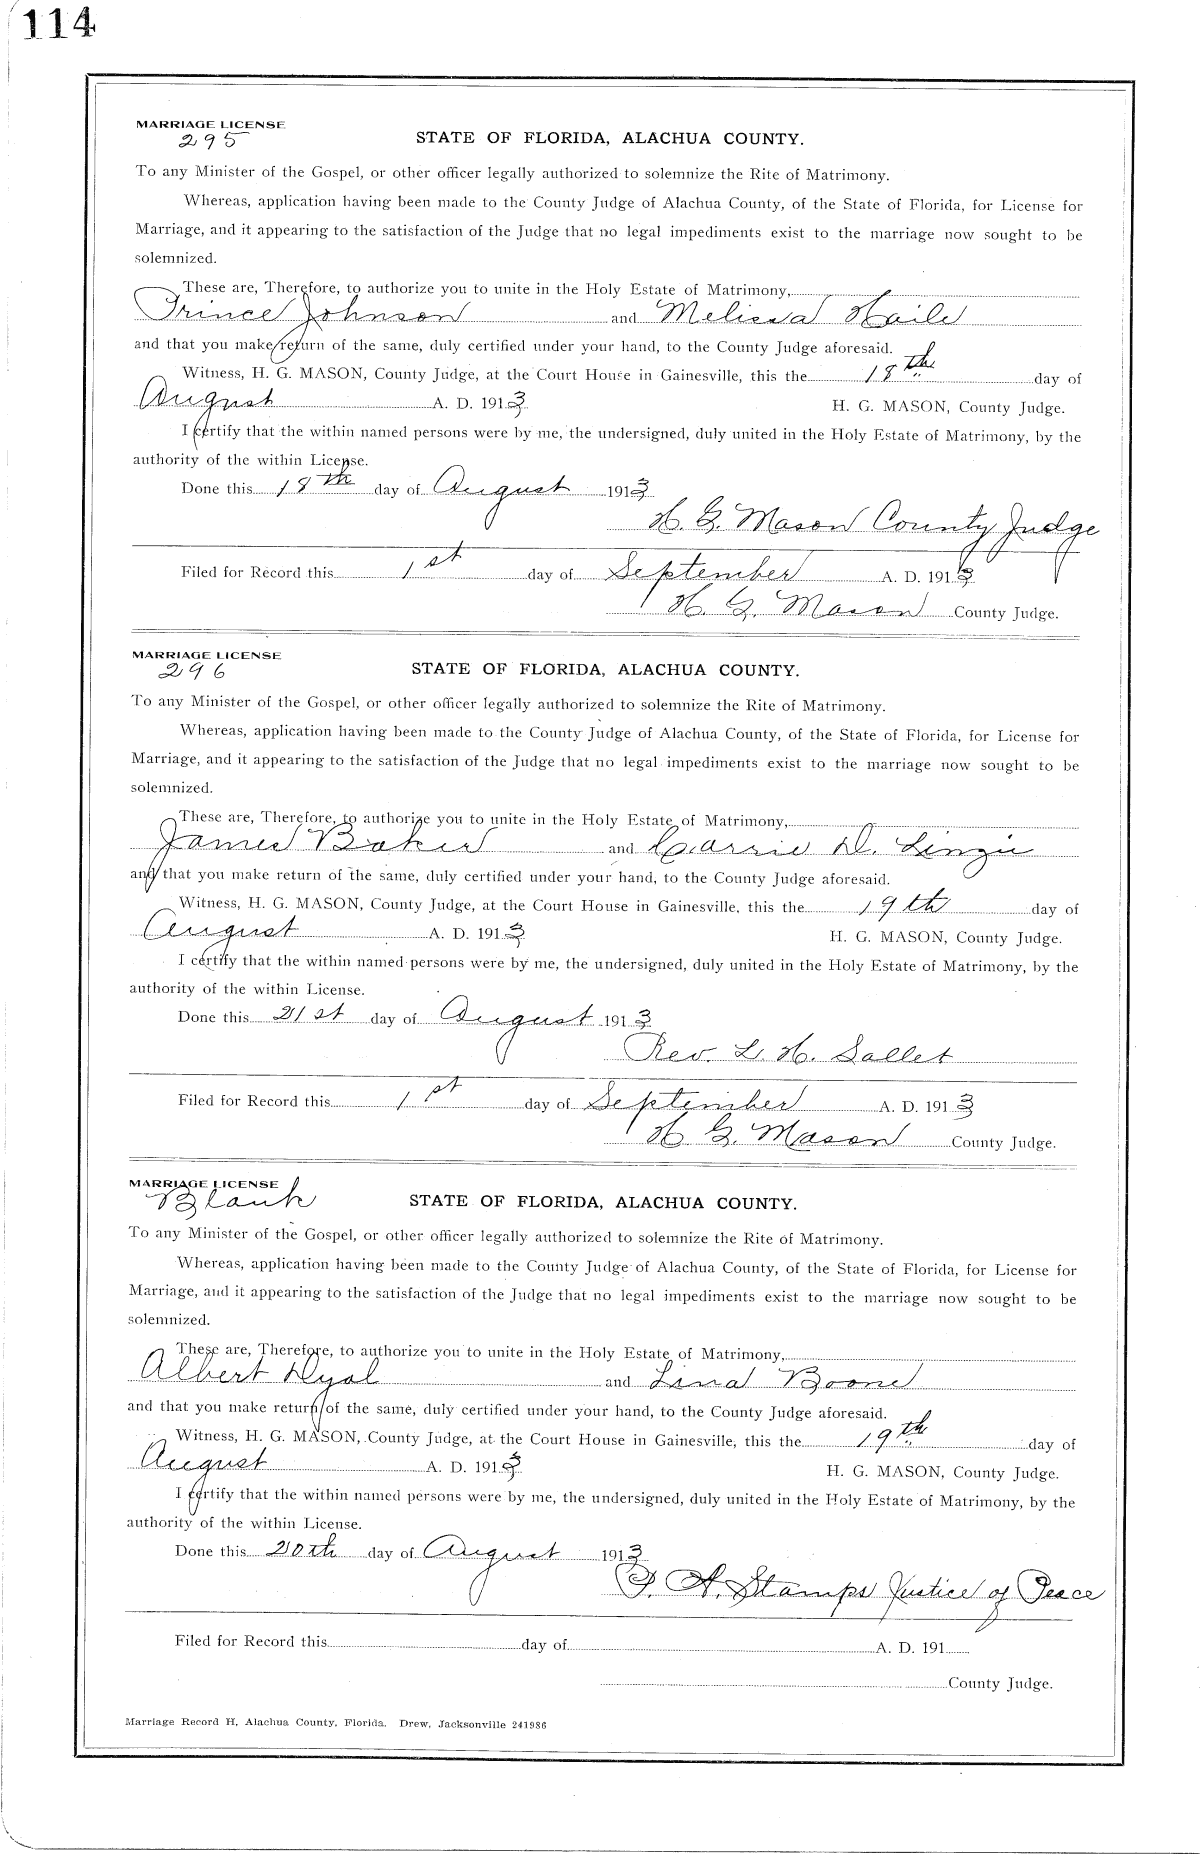 114
MARRIAGE LICENSE
295
STATE OF FLORIDA, ALACHUA COUNTY.
To any Minister of the Gospel, or other officer legally authorized to solemnize the Rite of Matrimony.
Whereas, application having been made to the County Judge of Alachua County, of the State of Florida, for License for
Marriage, and it appearing to the satisfaction of the Judge that no legal impediments exist to the marriage now sought to be
solemnized.
These are, Therefore, to authorize you to unite in the Holy Estate of Matrimony,
Prince Johnson and Melissa Haile
and that you make return of the same, duly certified under your hand, to the County Judge aforesaid.
Witness, H. G. MASON, County Judge, at the Court House in Gainesville, this the 18th day of
August A. D. 1913 H. G. MASON, County Judge.
I certify that the within named persons were by me, the undersigned, duly united in the Holy Estate of Matrimony, by the
authority of the within License.
Done this 18th day of August 1913
H. G. Mason County Judge
Filed for Record this 1st day of September A. D. 1913
H. G. Mason County Judge.
MARRIAGE LICENSE
296
STATE OF FLORIDA, ALACHUA COUNTY.
To any Minister of the Gospel, or other officer legally authorized to solemnize the Rite of Matrimony.
Whereas, application having been made to the County Judge of Alachua County, of the State of Florida, for License for
Marriage, and it appearing to the satisfaction of the Judge that no legal impediments exist to the marriage now sought to be
solemnized.
These are, Therefore, to authorize you to unite in the Holy Estate of Matrimony,
James Baker and Carrie D. Lingie
and that you make return of the same, duly certified under your hand, to the County Judge aforesaid.
Witness, H. G. MASON, County Judge, at the Court House in Gainesville, this the 19th day of
August A. D. 1913 H. G. MASON, County Judge.
I certify that the within named persons were by me, the undersigned, duly united in the Holy Estate of Matrimony, by the
authority of the within License.
Done this 21st day of August 1913
Rev. L. H. Sallet
Filed for Record this 1st day of September A. D. 1913
H. G. Mason County Judge.
MARRIAGE LICENSE
Blank
STATE OF FLORIDA, ALACHUA COUNTY.
To any Minister of the Gospel, or other officer legally authorized to solemnize the Rite of Matrimony.
Whereas, application having been made to the County Judge of Alachua County, of the State of Florida, for License for
Marriage, and it appearing to the satisfaction of the Judge that no legal impediments exist to the marriage now sought to be
solemnized.
These are, Therefore, to authorize you to unite in the Holy Estate of Matrimony,
Albert Dyal and Lina Boone
and that you make return of the same, duly certified under your hand, to the County Judge aforesaid.
Witness, H. G. MASON, County Judge, at the Court House in Gainesville, this the 19th day of
August A. D. 1913 H. G. MASON, County Judge.
I certify that the within named persons were by me, the undersigned, duly united in the Holy Estate of Matrimony, by the
authority of the within License.
Done this 20th day of August 1913
P. A. Stamps Justice of Peace
Filed for Record this day of A. D. 191
County Judge.
Marriage Record H, Alachua County, Florida. Drew, Jacksonville 241986